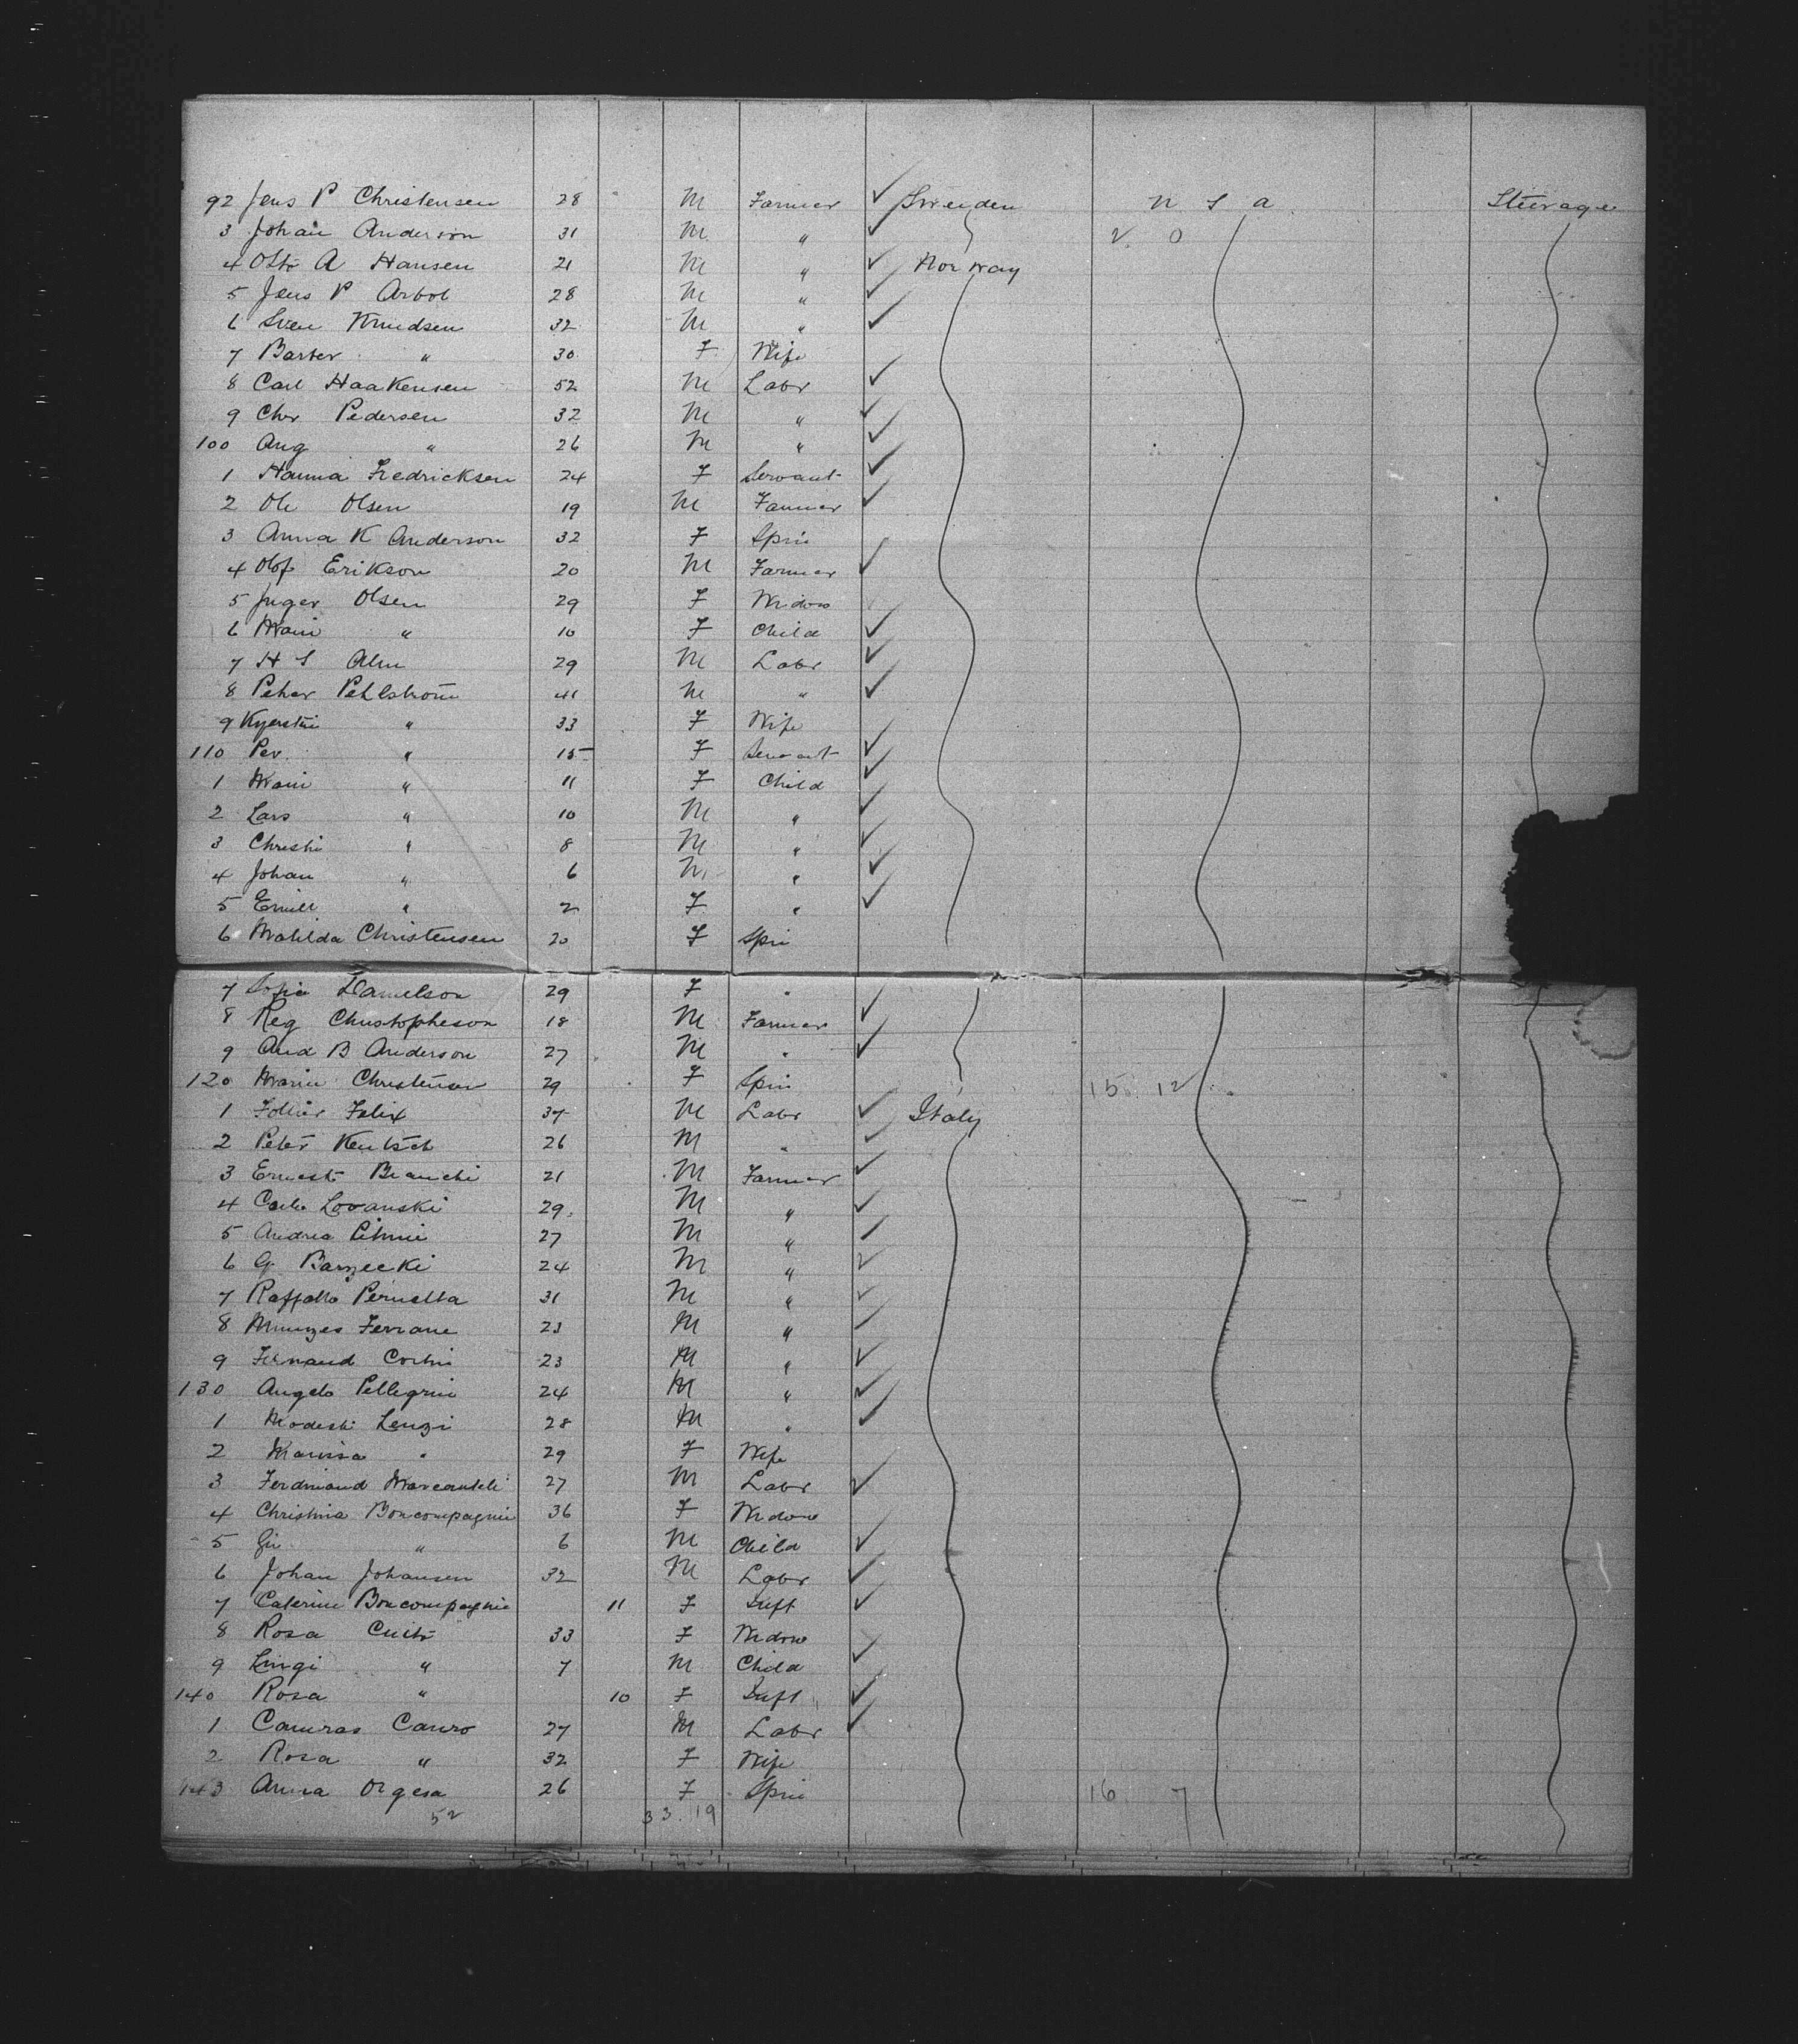 92 Jens P Christensen 28 M Farmer ✓ Sweden U S A Steerage
3 Johan Anderson 31 M " ✓ 2 0
4 Otto A Hansen 21 M " ✓ Norway
5 Jens P Arbol 28 M " ✓
6 Sven Knudsen 32 M " ✓
7 Barber " 30 F Wife
8 Carl Haakensen 52 M Labr ✓
9 Chr Pedersen 32 M " ✓
100 Aug " 26 M " ✓
1 Hanna Fredricksen 24 F Servant ✓
2 Ole Olsen 19 M Farmer ✓
3 Anna K Anderson 32 F Spin
4 Olof Erikson 20 M Farmer ✓
5 Inger Olsen 29 F Widow
6 Mari " 10 F Child ✓
7 H S Alm 29 M Labr ✓
8 Peher Pehlstrom 41 M " ✓
9 Kyerstin " 33 F Wife
110 Per " 15 F Servant ✓
1 Mari " 11 F Child ✓
2 Lars " 10 M " ✓
3 Christi " 8 M " ✓
4 Johan " 6 M " ✓
5 Emill " 2 F " ✓
6 Matilda Christensen 20 F Spin
7 Sofia Danielson 29 F "
8 Reg Christopheson 18 M Farmer ✓
9 And B Anderson 27 M " ✓
120 Marie Christenser 29 F Spin 15 12
1 Follier Felix 37 M Labr ✓ Italy
2 Peter Kentsch 26 M " ✓
3 Ernest Bianchi 21 M Farmer ✓
4 Carlo Lovanski 29 M " ✓
5 Andrea 27 M " ✓
6 G Barzecki 24 M " ✓
7 Raffallo Pernetta 31 M " ✓
8 Ferrane 23 M " ✓
9 Fernand Corbni 23 M " ✓
130 Angelo Pellegrini 24 M " ✓
1 Modesti Lenzi 28 M " ✓
2 Marissa " 29 F Wife
3 Ferdinand Marcantelli 27 M Labr ✓
4 Christina Boncompagnie 36 F Widow
5 Gu " 6 M Child ✓
6 Johan Johansen 32 M Labr ✓
7 Caterine Boncompagnie 11 F Inft ✓
8 Rosa Cuito 33 F Widow
9 Lingi " 7 M Child ✓
140 Rosa " 10 F Inft ✓
1 Cameras Canro 27 M Labr ✓
2 Rosa " 32 F Wife
143 Anna Orgesa 26 F Spin 16 7
52 33 19